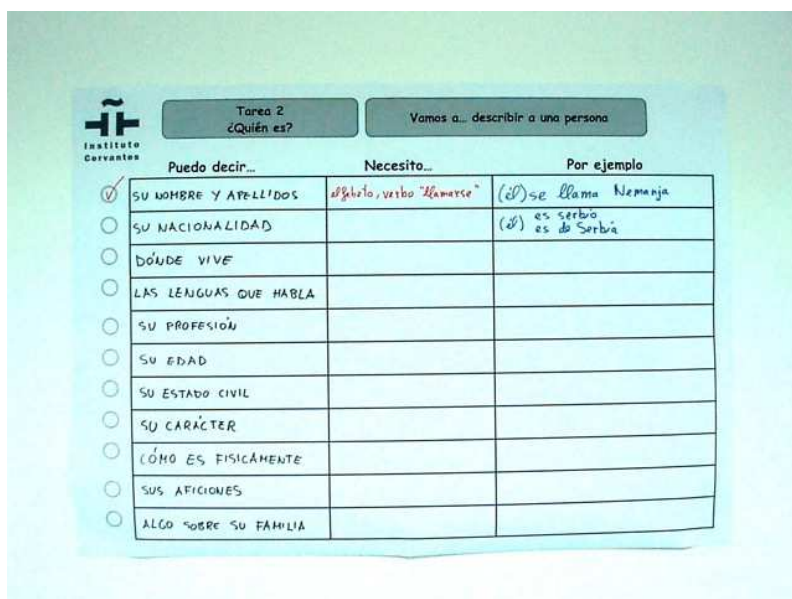 Instituto
Cervantes
Tarea 2
¿Quién es?
Vamos a... describir a una persona
Puedo decir... Necesito... Por ejemplo
SU NOMBRE Y APELLIDOS alfabeto, verbo "llamarse" (él) se llama Nemanja
SU NACIONALIDAD (él) es serbio
es de Serbia
DÓNDE VIVE
LAS LENGUAS QUE HABLA
SU PROFESIÓN
SU EDAD
SU ESTADO CIVIL
SU CARÁCTER
CÓMO ES FISICAMENTE
SUS AFICIONES
ALGO SOBRE SU FAMILIA